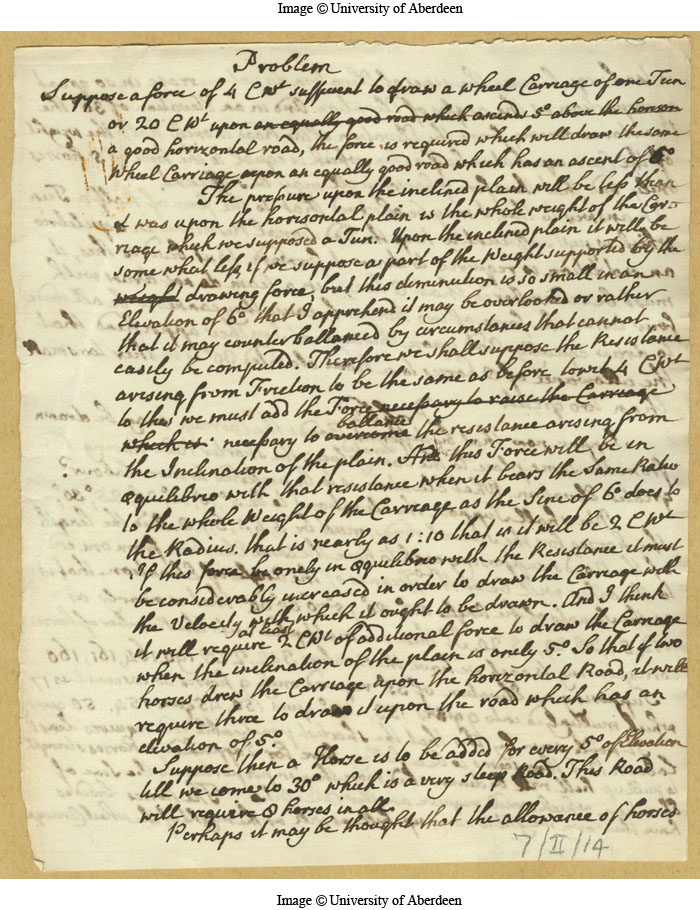 Image © University of Aberdeen
Problem
Suppose a force of 4 CWt suffient to draw a wheel Carriage of one Tun
or 20 CWt upon an equally good road which ascends 5° above the horison
a good horizontal road, the force is required which will draw the same
Wheel Carriage upon an equally good road which has an ascent of 6°
The pressure upon the inclined plain will be less than
it was upon the horisontal plain is the whole weight of the Car-
riage which we supposed a Tun. Upon the inclined plain it will be
some what less if we suppose a part of the Weight supported by the
weight drawing force, but this diminution is so small in an
Elevation of 6° that I apprehend it may be overlooked or rather
that it may counterballanced by circumstances that cannot
easily be computed. Therefore we shall suppose the Resistance
arising from Friction to be the same as before towit 4 CWt
to this we must add the Force necessary to raise the Carriage
ballance
which is: necessary to overcome the resistance arising from
the Inclination of the plain. And this Force will be in
Æquilibrio with that resistance when it bears the Same Ratio
to the whole Weight of the Carriage as the Sine of 6° does to
the Radius. that is nearly as 1:10 that is it will be 2 CWt
If this force be onely in Æquilibrio with the Resistance it must
be considerably increased in order to draw the Carriage with
the Velocity with which it ought to be drawn. And I think
at least
it will require 2 CWt of additional force to draw the Carriage
when the inclination of the plain is onely 5°. So that if two
horses drew the Carriage upon the horizontal Road, it will
require three to draw it upon the road which has an
elevation of 5°.
Suppose then a Horse is to be added for every 5° of Elevation
till we come to 30° which is a very steep Road. This Road
will require 8 horses in all.
Perhaps it may be thought that the allowance of horses
7/II/14
Image © University of Aberdeen